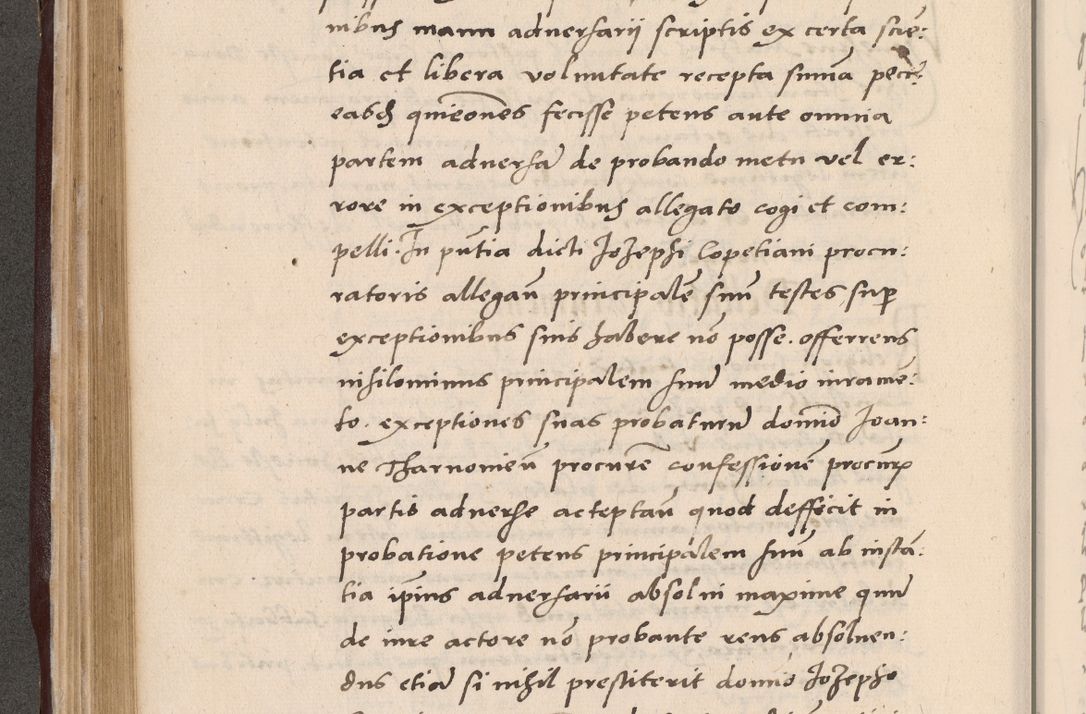 nibus manu adversarii scriptis ex certa scie͂:
tia et libera voluntate recepta suma͂ pecu͂:
easq͂ quieo͂nes fecisse petens ante omnia
partem adversa͂ de probando metu vel er:
rore in exceptionibus allegato cogi et com:
pelli. In pu͂tia dicti Jozephi Copetiani procu:
ratoris allegan͂ principale͂ suu͂ testes sup
exceptionibus suis habere no͂ posse. offerrens
nihilominus principalem suu͂ medio iurame͂:
to. exceptiones suas probaturu͂ domino Joan:
ne Tharnovien͂ procure͂ confessione͂ procur͂
partis adverse acteptan͂ quod deffecit in
probatione petens principalem suu͂ ab insta͂:
tia ip͂ius adversarii absolui maxime quu͂
de iure actore no͂ probante reus absoluen:
dus etia͂ si nihil prestiterit domi͂o Jozepho